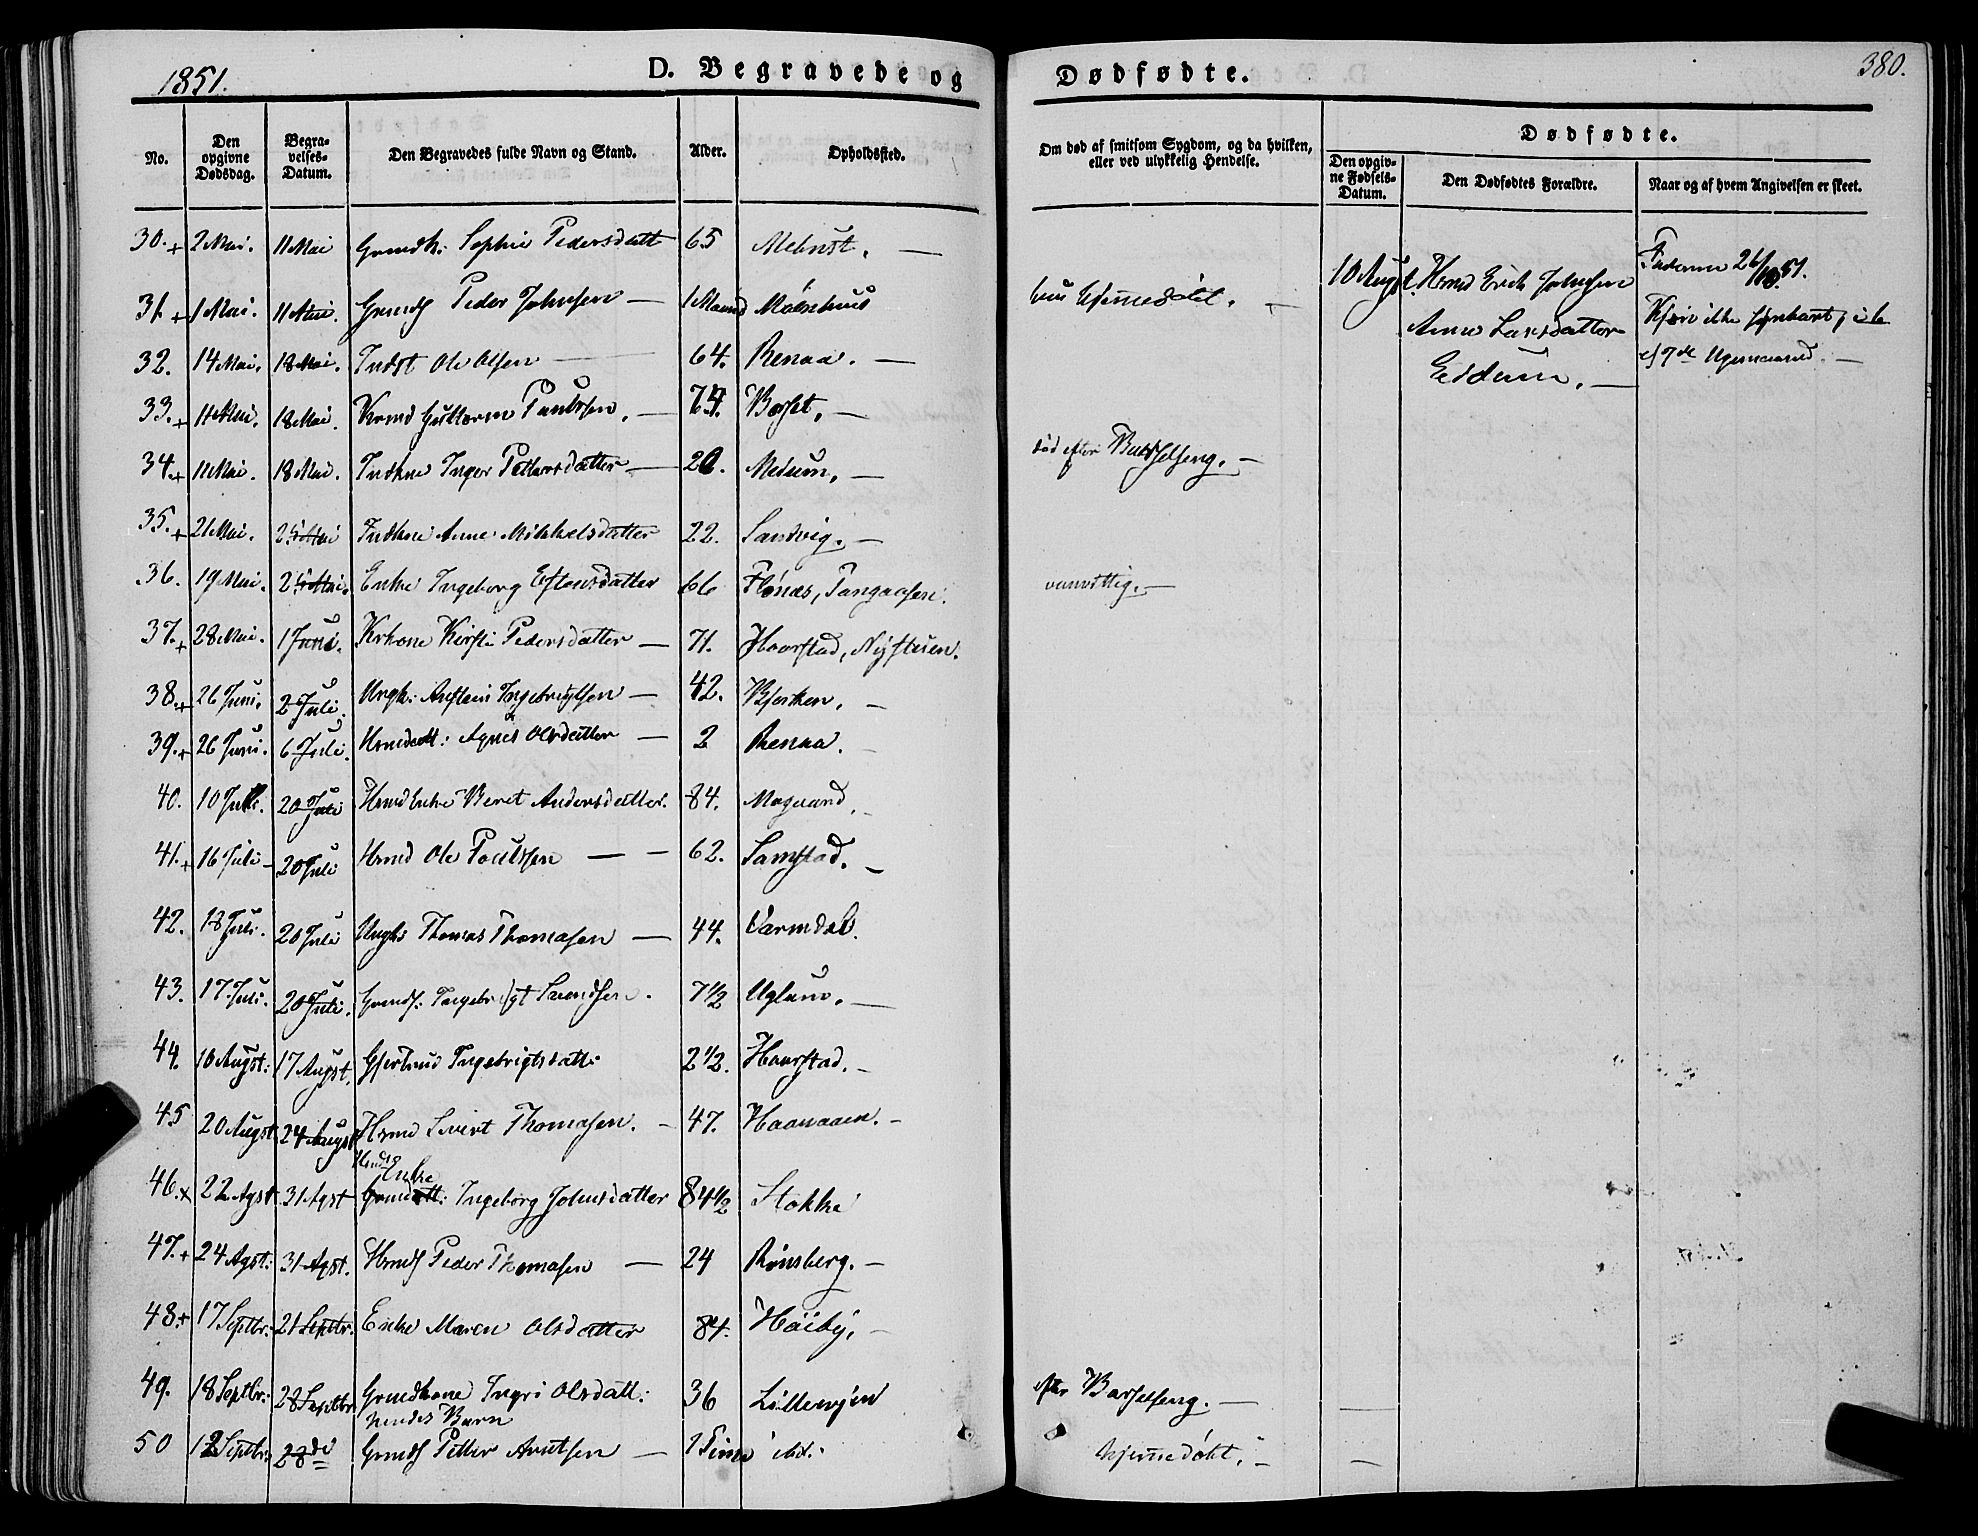 1851.
D. Begravede og Dødfødte.
380.
No.
Den opgivne Dødsdag.
Begravelses-Datum.
Den Begravedes fulde Navn og Stand.
Alder.
Opholdssted.
Om død af smitsom Sygdom, og da hvilken, eller ved ulykkelig Hendelse.
Dødfødte.
Den opgivne Fødsels-Datum.
Den Dødfødtes Forældre.
Naar og af hvem Angivelsen er skeet.
30. + 2 Mai. 11 Mai Sophie Pedersdatt 65 Mehust. —
31. + 1 Mai. 11 Mai. Grmds Peder Johnsen — 1 Maand hjemmedøbt. —
32. 14 Mai. 18 Mai. Indst Ole Olsen — 64. Renaa. —
33. + 11 Mai. 18 Mai. Guttorm Paulssen. — 74. Borset. —
34. + 11 Mai. 18 Mai. Indkone Inger Pettersdatter — Melum. — død efter Barselseng. —
35. + 21 Mai. 25 Mai Indkone Anne Mikkelsdatter 22. Sandvig. —
36. 19 Mai. 25 Mai. Enke Ingeborg Estensdatter 66 Flønæs, Tangaasen. vanvittig. —
37. + 28 Mai. 1 Juni. Kirsti Pedersdatter — 71. Haarstad, Nystuen.
38. + 26 Juni. 2 Juli. Ungk: Anstein Ingebrigtsen — 42. Bjerken. —
39. + 26 Juni. 6 Juli. Agnes Olsdatter — 2 Renaa. —
40. 10 Juli. 20 Juli Hrmd Enke Beret Andersdatter. 84. Mogaard.
41. + 16 Juli — 20 Juli Hrmd Ole Poulssen — — 62. Samstad. —
42. 18 Juli. 20 Juli Ungks Thomas Thomasen — 44. Varmdal.
43. 17 Juli. 20 Juli. Grmds: Ingebrigt Svendsen. 7 1/2 Uglum. —
44. 10 Augst: 17 Augst. Gjertrud Ingebrigtsdatt: 2 1/2. Haarstad. —
45 20 Augst 24 Augst Hrmd Sivert Thomasen. — 47. —
Hrmds Enke
46. x 22 Agst 31 Agst Grmdatt: Ingeborg Johnsdatter 84 1/2 Stokke
47. + 24 Agst: 31 Agst. Hrmds Peder Thomasen — 24 Rønsberg. —
48. + 17 Septbr: 21 Septbr. Enke Maren Olsdatter 84. Høiby. —
49. 18 Septbr: 28 Septbr Grmdkone Ingri Olsdatt: 36 efter Barselseng. —
hendes Barn
50 12 Septbr: 28 di Grmds Petter Arntsen — 1 Time ibd: hjemmedøbt. —
10 Augst. Hrmd Erik Johnsen
Anne Larsdatter
Eidum. —
Faderen 26/10 51.